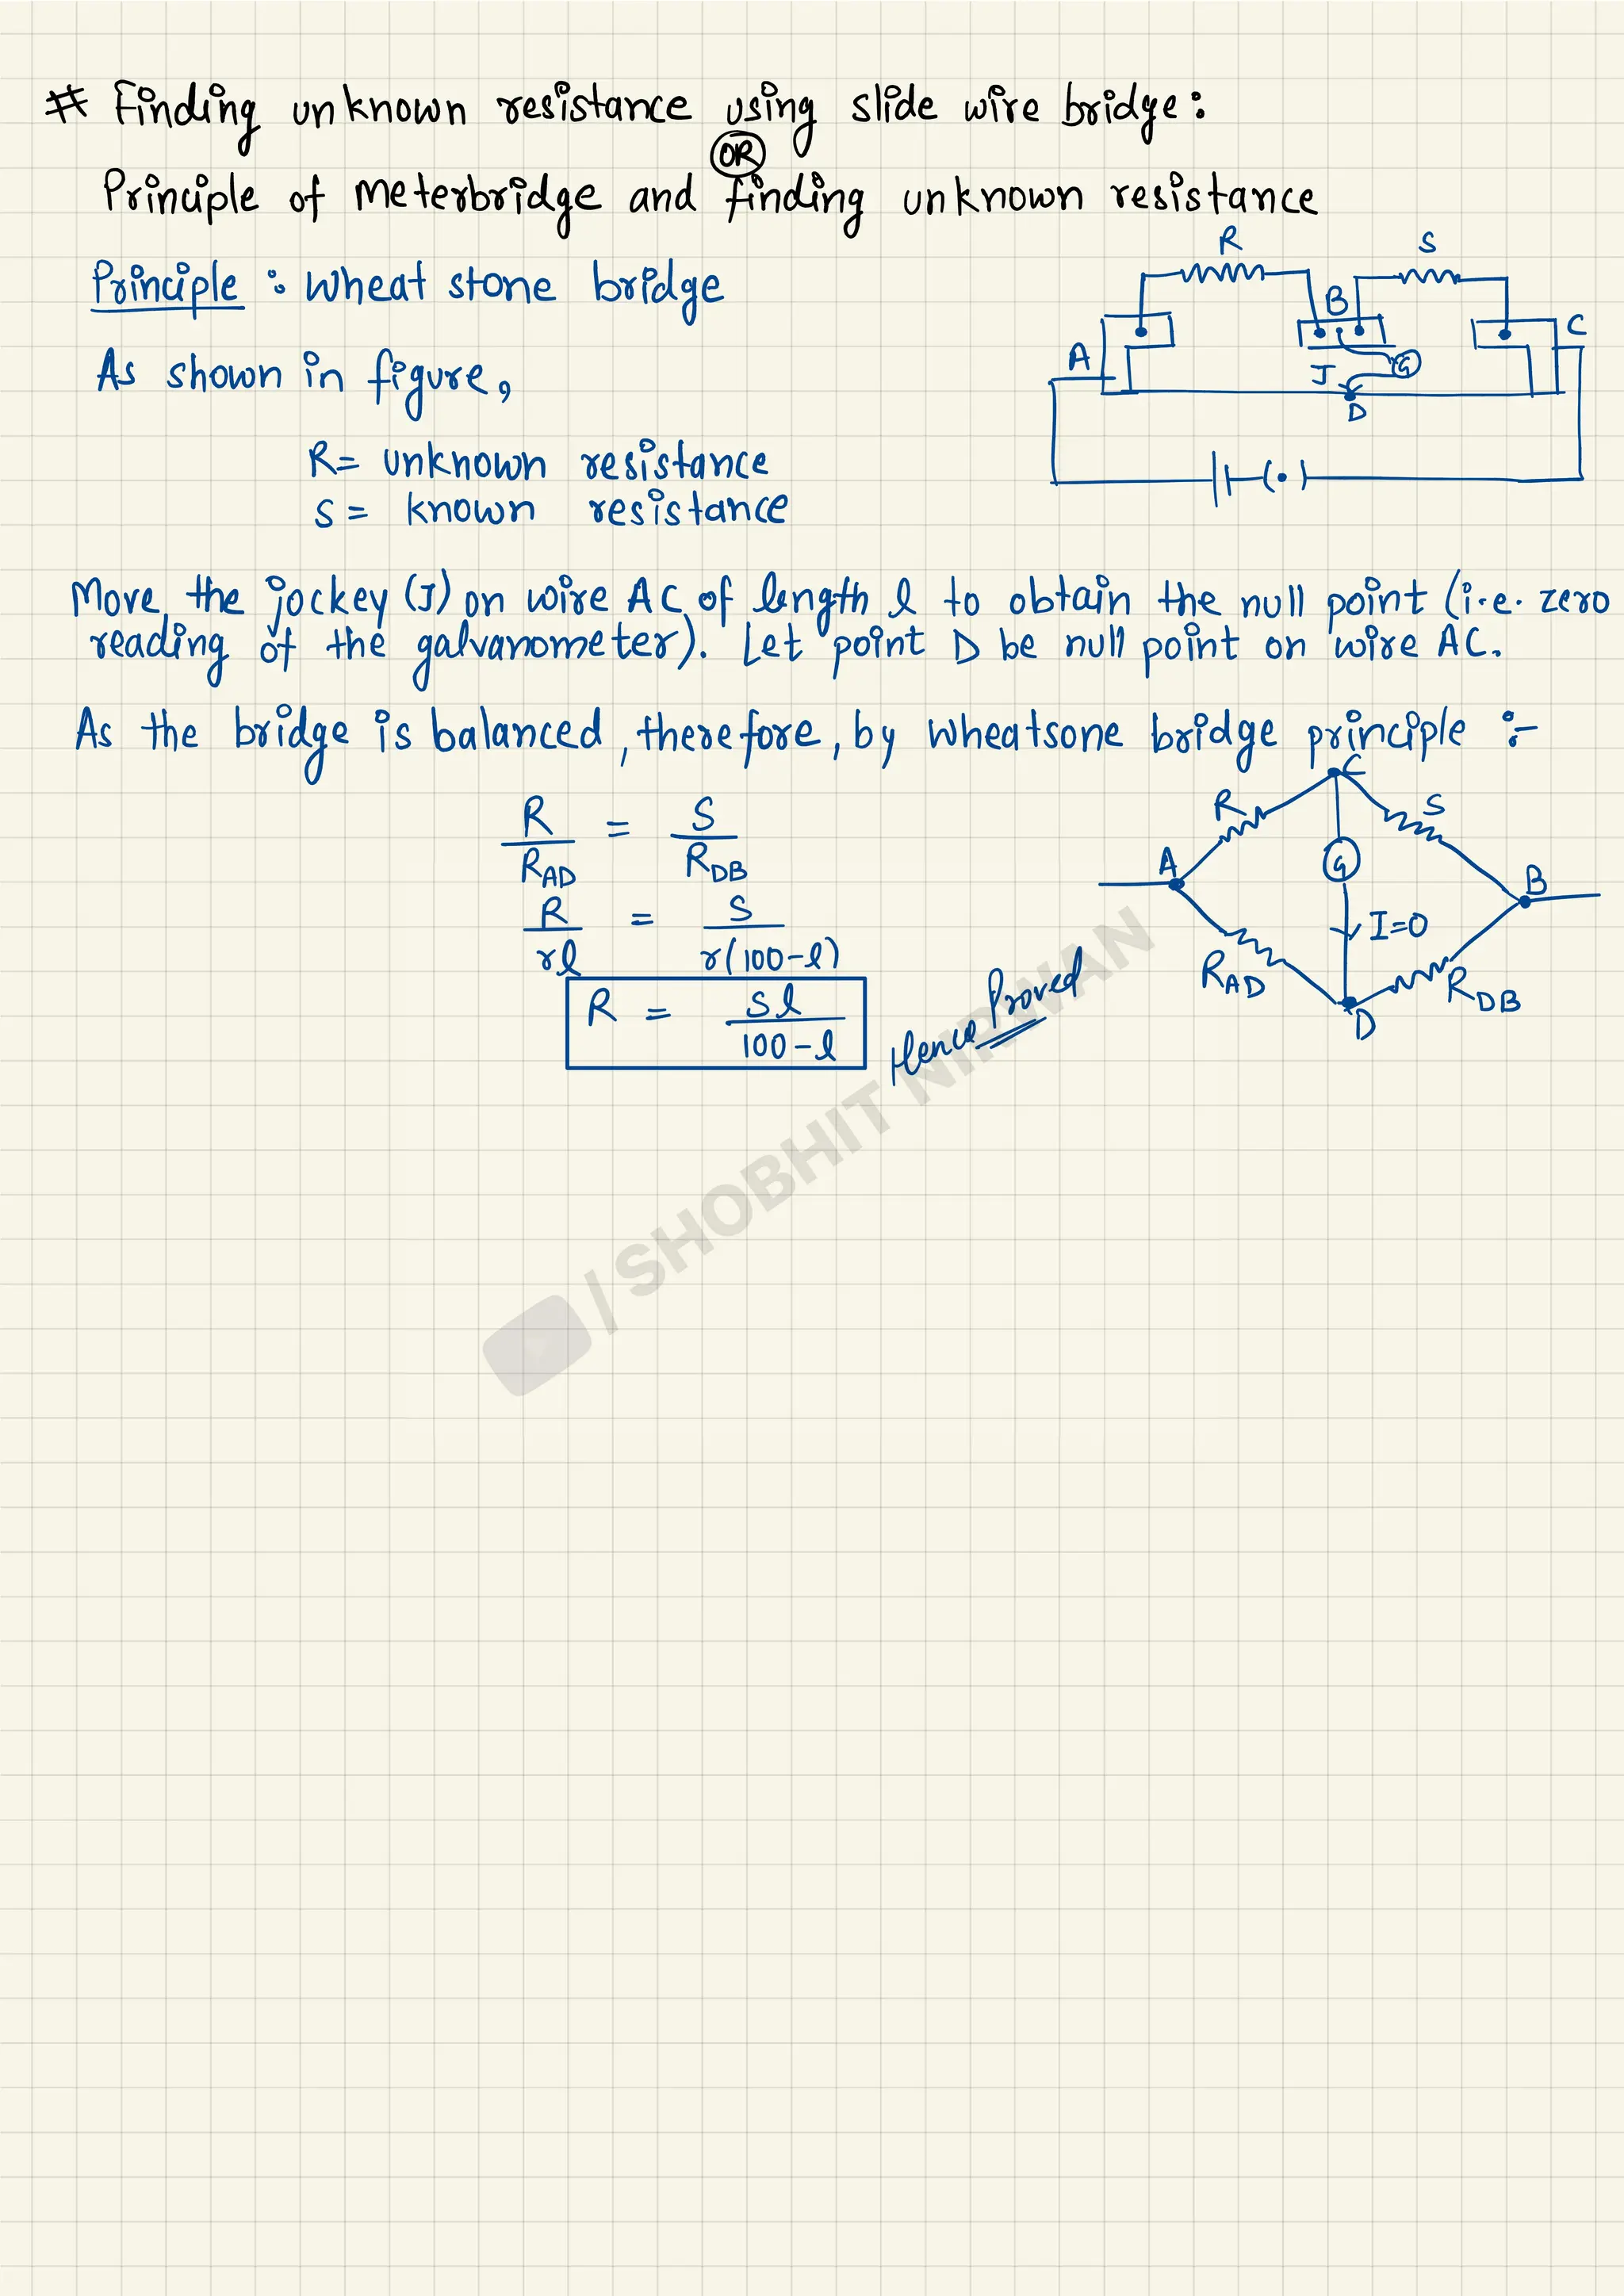 # Finding unknown resistance using slide wire bridge:
OR
Principle of Meterbridge and finding unknown resistance
Principle : Wheat stone bridge
As shown in figure,
R= unknown resistance
S= known resistance
R
S
B
C
A
J
G
D
Move the jockey (J) on wire AC of length l to obtain the null point (i.e. zero
reading of the galvanometer). Let point D be null point on wire AC.
As the bridge is balanced, therefore, by wheatsone bridge principle :-
R/R_AD = S/R_DB
R/rl = S/r(100-l)
R = Sl/100-l
Hence Proved
C
R
S
A
G
B
I=0
R_AD
R_DB
D
/ SHOBHIT NIRWAN